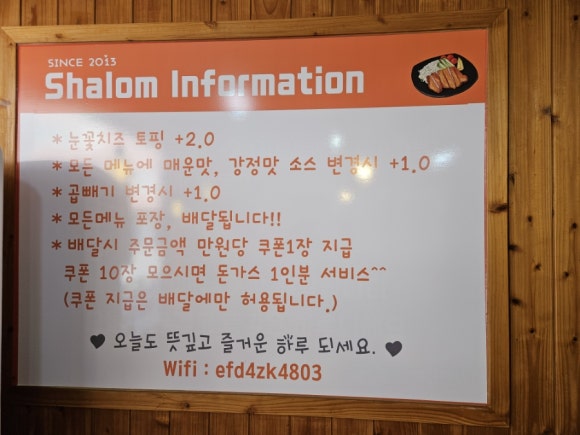 SINCE 2013
Shalom Information
* 눈꽃치즈 토핑 +2.0
* 모든 메뉴에 매운맛, 강정맛 소스 변경시 +1.0
* 곱빼기 변경시 +1.0
* 모든메뉴 포장, 배달됩니다!!
* 배달시 주문금액 만원당 쿠폰1장 지급
쿠폰 10장 모으시면 돈가스 1인분 서비스^^
(쿠폰 지급은 배달에만 허용됩니다.)
♥ 오늘도 뜻깊고 즐거운 하루 되세요. ♥
Wifi : efd4zk4803